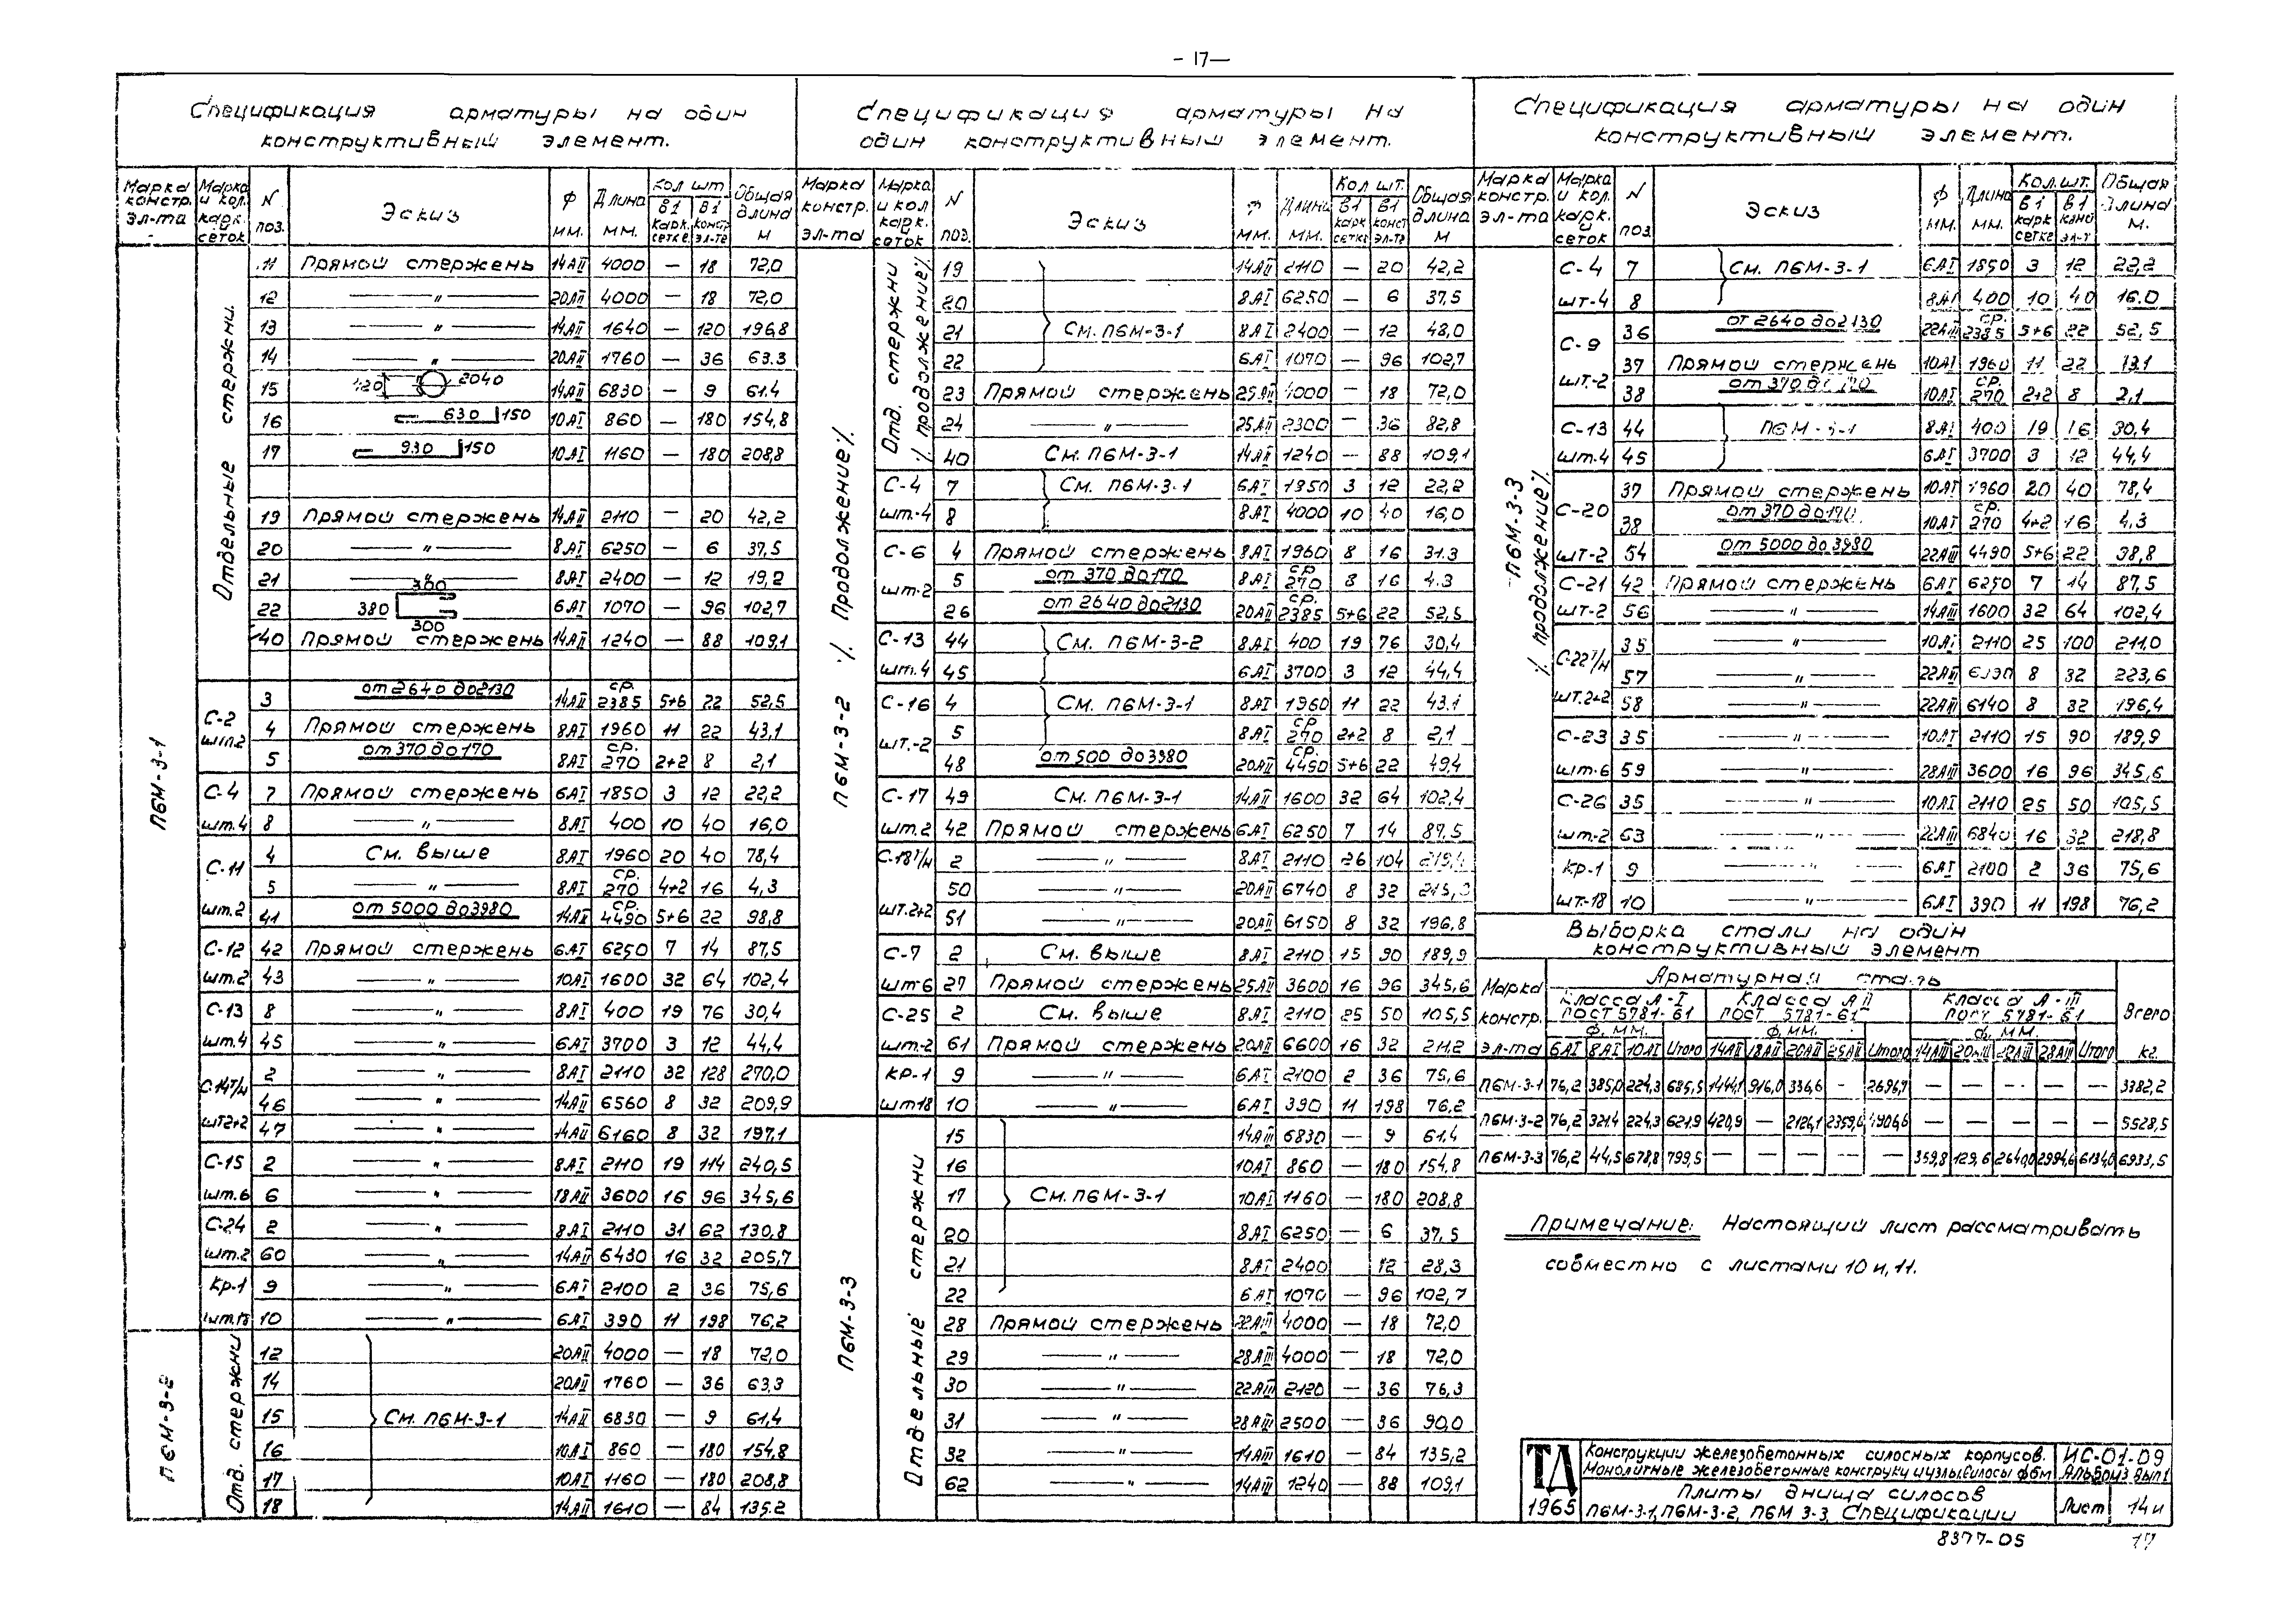 - 17 —
Спецификация арматуры на один
конструктивный элемент.
Марка констр. эл-та | Марка и кол. карк. и сеток | N поз. | Эскиз | Ф мм. | Длина мм. | Кол шт. в 1 карк. сетке | в 1 констр эл-те | Общая длина м
П6М-3-1
Отдельные стержни.
11 Прямой стержень 14АII 4000 — 18 72,0
12 — " — 20АII 4000 — 18 72,0
13 — " — 14АII 1640 — 120 196,8
14 — " — 20АII 1760 — 36 63.3
15 120 2040 14АII 6830 — 9 61.4
16 630 150 10АI 860 — 180 154,8
17 930 150 10АI 1160 — 180 208,8
19 Прямой стержень 14АII 2110 — 20 42,2
20 — " — 8АI 6250 — 6 37,5
21 — " — 8АI 2400 — 12 19,2
22 380 300 300 6АI 1070 — 96 102,7
40 Прямой стержень 14АII 1240 — 88 109,1
С-2 шт.2
3 от 2640 до 2130 14АII ср. 2385 5+6 22 52,5
4 Прямой стержень 8АI 1960 11 22 43,1
5 от 370 до 170 8АI ср. 270 2+2 8 2,1
С-4 7 Прямой стержень 6АI 1850 3 12 22,2
шт.4 8 — " — 8АI 400 10 40 16,0
С-11 4 См. выше 8АI 1960 20 40 78,4
5 — " — 8АI ср. 270 4+2 16 4,3
шт.2 41 от 5000 до 3980 14АII ср. 4490 5+6 22 98,8
С-12 42 Прямой стержень 6АI 6250 7 14 87,5
шт.2 43 — " — 10АI 1600 32 64 102,4
С-13 8 — " — 8АI 400 19 76 30,4
шт.4 45 — " — 6АI 3700 3 12 44,4
С-14т/н 2 — " — 8АI 2110 32 128 270,0
46 — " — 14АII 6560 8 32 209,9
шт2+2 47 — " — 14АII 6160 8 32 197,1
С-15 2 — " — 8АI 2110 19 114 240,5
шт.6 6 — " — 18АII 3600 16 96 345,6
С-24 2 — " — 8АI 2110 31 62 130,8
шт.2 60 — " — 14АII 6430 16 32 205,7
Кр-1 9 — " — 6АI 2100 2 36 75,6
шт.18 10 — " — 6АI 390 11 198 76,2
П6М-3-2
Отд. стержни
См. П6М-3-1
12 20АII 4000 — 18 72,0
14 20АII 1760 — 36 63,3
15 14АII 6830 — 9 61,4
16 10АI 860 — 180 154,8
17 10АI 1160 — 180 208,8
18 14АII 1610 — 84 135.2
Спецификация арматуры на
один конструктивный элемент.
Марка констр. эл-та | Марка и кол карк. и сеток | N поз. | Эскиз | Ф мм. | Длина мм. | Кол шт. в 1 карк сетке | в 1 конст эл-те | Общая длина м
П6М-3-2 ⁒ Продолжение ⁒
Отд. стержни ⁒ продолжение ⁒
См. П6М-3-1
19 14АII 2110 — 20 42,2
20 8АI 6250 — 6 37,5
21 8АI 2400 — 12 48,0
22 6АI 1070 — 96 102,7
23 Прямой стержень 25АII 4000 — 18 72,0
24 — " — 25АII 2300 — 36 82,8
40 См. П6М-3-1 14АII 1240 — 88 109,1
С-4 7 См. П6М-3-1 6АI 1850 3 12 22,2
шт.4 8 8АI 4000 10 40 16,0
С-6 4 Прямой стержень 8АI 1960 8 16 31.3
шт.2 5 от 370 до 170 8АI ср 270 8 16 4.3
26 от 2640 до 2130 20АII ср. 2385 5+6 22 52,5
С-13 44 См. П6М-3-2 8АI 400 19 76 30,4
шт.4 45 6АI 3700 3 12 44,4
С-16 4 См. П6М-3-1 8АI 1960 11 22 43.1
шт.-2 5 8АI ср 270 2+2 8 2,1
48 от 500 до 3980 20АII ср. 4490 5+6 22 49,4
С-17 49 См. П6М-3-1 14АII 1600 32 64 102,4
шт.2 42 Прямой стержень 6АI 6250 7 14 87,5
С-18т/н 2 — " — 8АI 2110 26 104 219,4
50 — " — 20АII 6740 8 32
шт.2+2 51 — " — 20АII 6150 8 32 196,8
С-7 2 См. выше 8АI 2110 15 90 189,9
шт-6 27 Прямой стержень 25АII 3600 16 96 345,6
С-25 2 См. выше 8АI 2110 25 50 105,5
шт-2 61 Прямой стержень 20АII 6600 16 32 211,2
КР-1 9 — " — 6АI 2100 2 36 75,6
шт18 10 — " — 6АI 390 11 198 76,2
П6М-3-3
Отдельные стержни
См. П6М-3-1
15 14АIII 6830 — 9 61,4
16 10АI 860 — 180 154,8
17 10АI 1160 — 180 208,8
20 8АI 6250 — 6 37,5
21 8АI 2400 12 28,3
22 6АI 1070 — 96 102,7
28 Прямой стержень 22АIII 4000 — 18 72,0
29 — " — 28АIII 4000 — 18 72,0
30 — " — 22АIII 2120 — 36 76,3
31 — " — 28АIII 2500 — 36 90,0
32 — " — 14АIII 1610 — 84 135,2
62 — " — 14АIII 1240 — 88 109,1
Спецификация арматуры на один
конструктивный элемент.
Марка констр. эл-та | Марка и кол. карк. и сеток | N поз | Эскиз | Ф мм. | Длина мм. | Кол. шт. в 1 карк сетке | в 1 конс эл-т | Общая длина м.
П6М-3-3 ⁒ продолжение ⁒
С-4 7 См. П6М-3-1 6АI 1850 3 12 22,2
шт-4 8 8АI 400 10 40 16.0
С-9 36 от 2640 до 2130 22АIII ср. 2385 5+6 22 52,5
37 Прямой стержень 10АI 1960 11 22
шт.-2 38 10АI ср. 270 2+2 8 2,1
С-13 44 8АI 400 19 16 30,4
шт.4 45 6АI 3700 3 12 44,4
С-20 37 Прямой стержень 10АI 1960 20 40 78,4
38 от 370 до 170 10АI ср. 270 4+2 16 4,3
шт-2 54 от 5000 до 3980 22АIII 4490 5+6 22 98,8
С-21 42 Прямой стержень 6АI 6250 7 14 87,5
шт-2 56 — " — 14АIII 1600 32 64 102,4
С-22т/н 35 — " — 10АI 2110 25 100 211,0
57 — " — 22АIII 8 32 223,6
шт.2+2 58 — " — 22АIII 6140 8 32 196,4
С-23 35 — " — 10АI 2110 15 90 189,9
шт.6 59 — " — 28АIII 3600 16 96 345,6
С-26 35 — " — 10АI 2110 25 50 105,5
шт.-2 63 — " — 22АIII 6840 16 32 218,8
Кр-1 9 — " — 6АI 2100 2 36 75,6
шт-18 10 — " — 6АI 390 11 198 76,2
Выборка стали на один
конструктивный элемент
Марка констр. эл-та | Арматурная сталь | Всего кг.
Класса А-I ГОСТ 5781-61 | Класса АII ГОСТ 5781-61 | Класса А-III ГОСТ 5781-61
Ф, мм. | Ф, мм. | Ф, мм.
6АI 8АI 10АI Итого 14АII 18АII 20АII 25АII Итого 14АIII 20АIII 22АIII 28АIII Итого
П6М-3-1 76,2 385,0 224,3 685,5 1444,1 916,0 336,6 - 2696,7 — — — — — 3382,2
П6М-3-2 76,2 321,4 224,3 621,9 420,9 — 2126,1 2359,6 4906,6 — — — — — 5528,5
П6М-3-3 76,2 44,5 678,8 799,5 — — — — — 359,8 129,6 2640,0 2994,6 6134,0 6933,5
Примечание: Настоящий лист рассматривать
совместно с листами 10 и 11.
ТД 1965
Конструкции железобетонных силосных корпусов.
Монолитные железобетонные конструкции узлы. Силосы ф6м
ИС-01-09
Альбом 3 вып 1
Плиты днища силосов
П6М-3-1, П6М-3-2, П6М 3-3, Спецификации
Лист 14и
8377-05 17